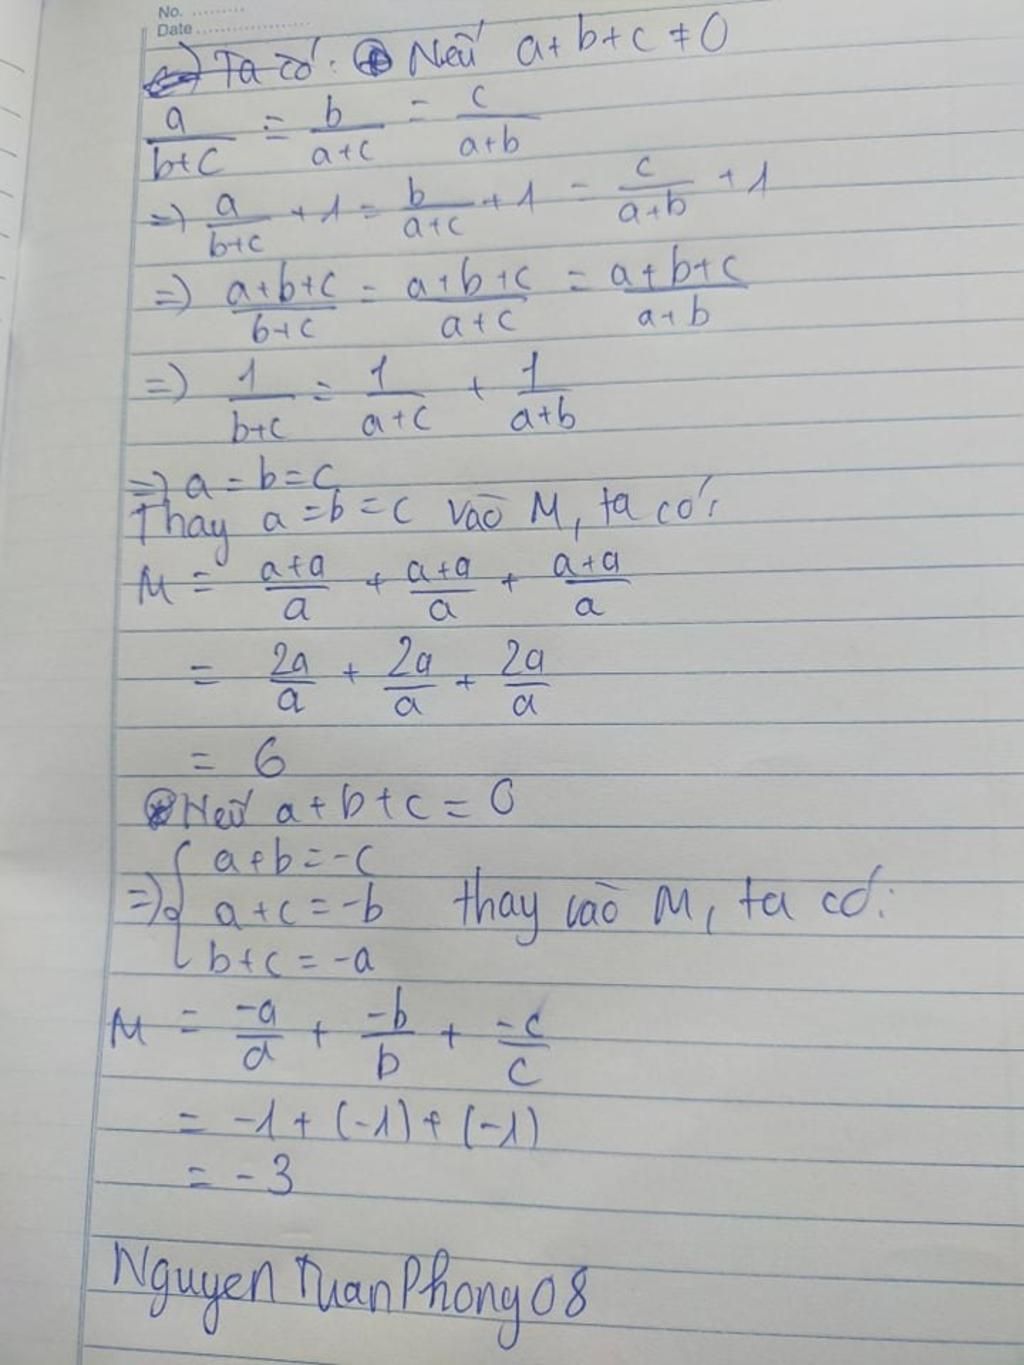 No. ..........
Date ......................
Ta có: ⊛ Nếu a+b+c ≠ 0
a/(b+c) = b/(a+c) = c/(a+b)
=> a/(b+c) + 1 = b/(a+c) + 1 = c/(a+b) + 1
=> (a+b+c)/(b+c) = (a+b+c)/(a+c) = (a+b+c)/(a+b)
=> 1/(b+c) = 1/(a+c) + 1/(a+b)
=> a = b = c
Thay a = b = c vào M, ta có:
M = (a+a)/a + (a+a)/a + (a+a)/a
= 2a/a + 2a/a + 2a/a
= 6
⊛ Nếu a+b+c = 0
=> { a+b = -c
a+c = -b thay vào M, ta có:
b+c = -a
M = -a/a + -b/b + -c/c
= -1 + (-1) + (-1)
= -3
Nguyen Tuan Phong 08